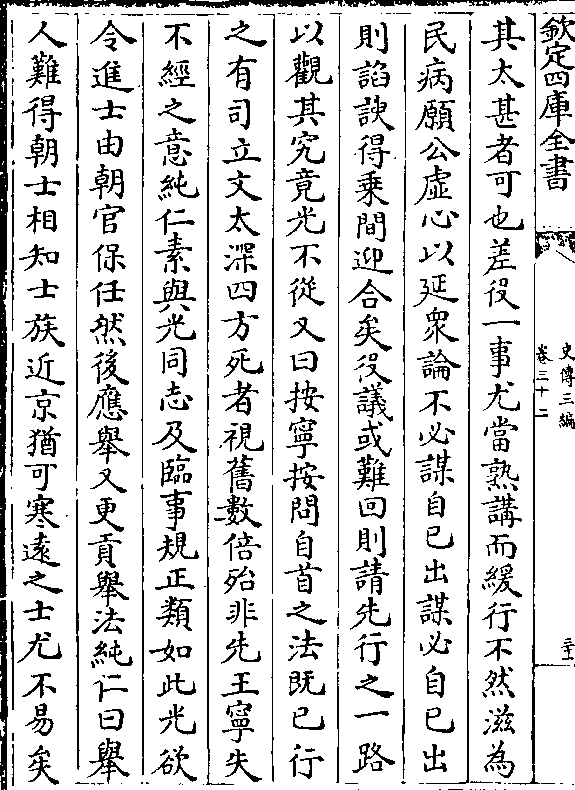 欽定四庫全書
史傳三編
卷三十二
三十一
其太甚者可也差役一事尤當熟講而緩行不然滋為
民病願公虛心以延衆論不必謀自已出謀必自已出
則諂諛得乗間迎合矣役議或難回則請先行之一路
以觀其究竟光不從又曰按寧按問自首之法既已行
之有司立文太深四方死者視舊數倍殆非先王寧失
不經之意純仁素與光同志及臨事規正類如此光欲
令進士由朝官保任然後應舉又更貢舉法純仁曰舉
人難得朝士相知士族近京猶可寒遠之士尤不易矣